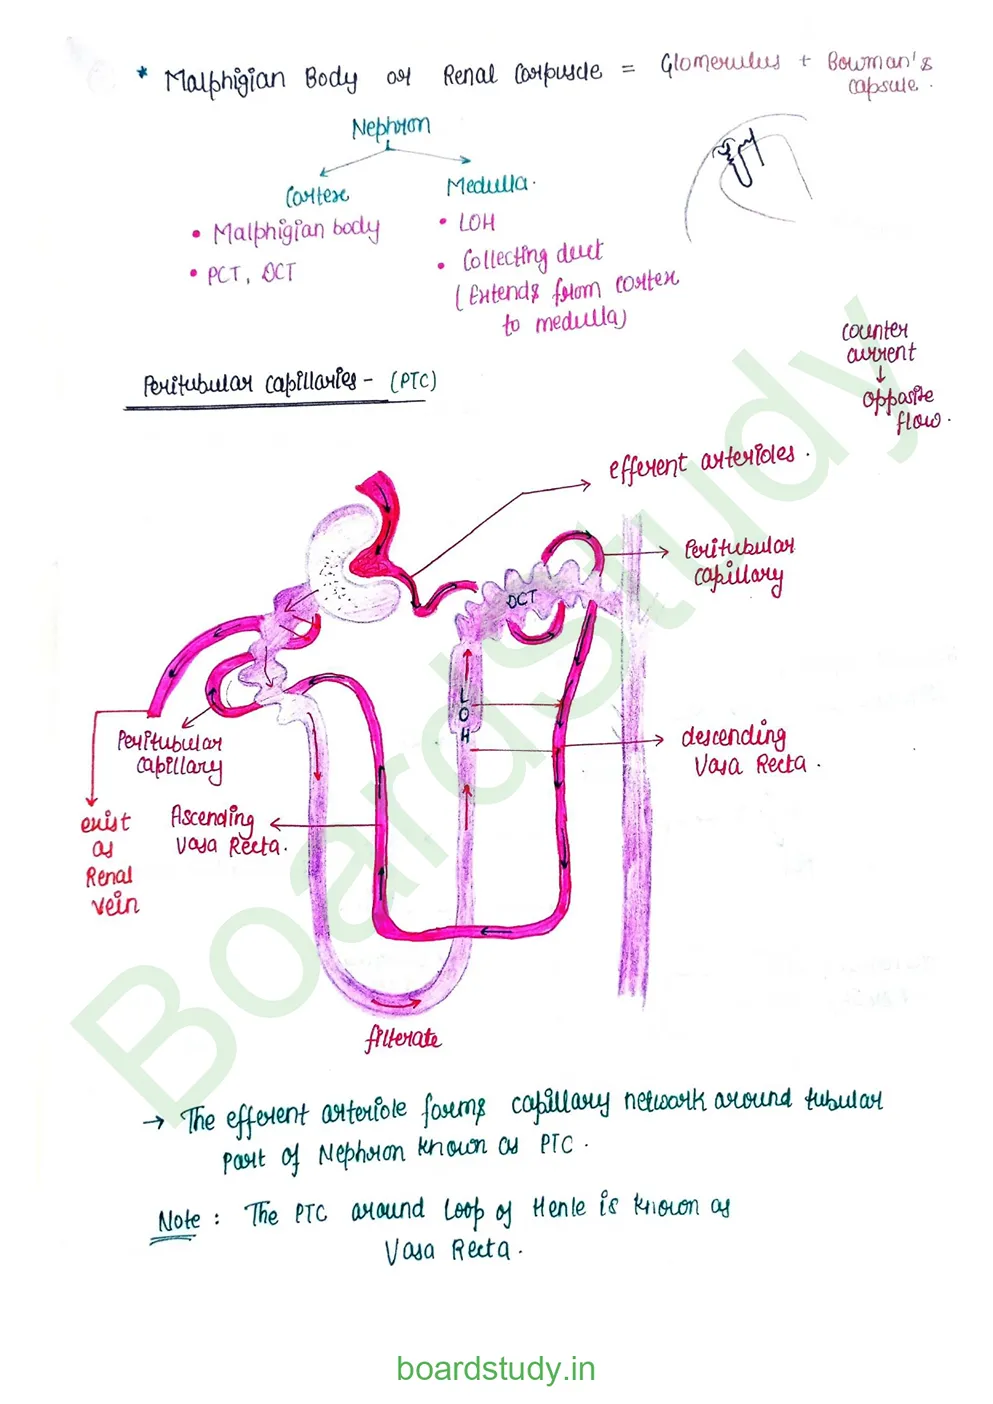 * Malphigian Body or Renal Corpuscle = Glomerulus + Bowman's
capsule.
Nephron
Cortex
Medulla.
• Malphigian body
• PCT, DCT
• LOH
• Collecting duct
(Extends from cortex
to medulla)
counter
current
↓
opposite
flow.
Peritubular capillaries - (PTC)
efferent arterioles.
Peritubular
capillary
DCT
LOH
Peritubular
capillary
descending
Vasa Recta.
Ascending
Vasa Recta.
exist
as
Renal
vein
filterate
→ The efferent arteriole forms capillary network around tubular
part of Nephron known as PTC.
Note: The PTC around Loop of Henle is known as
Vasa Recta.
Boardstudy
boardstudy.in